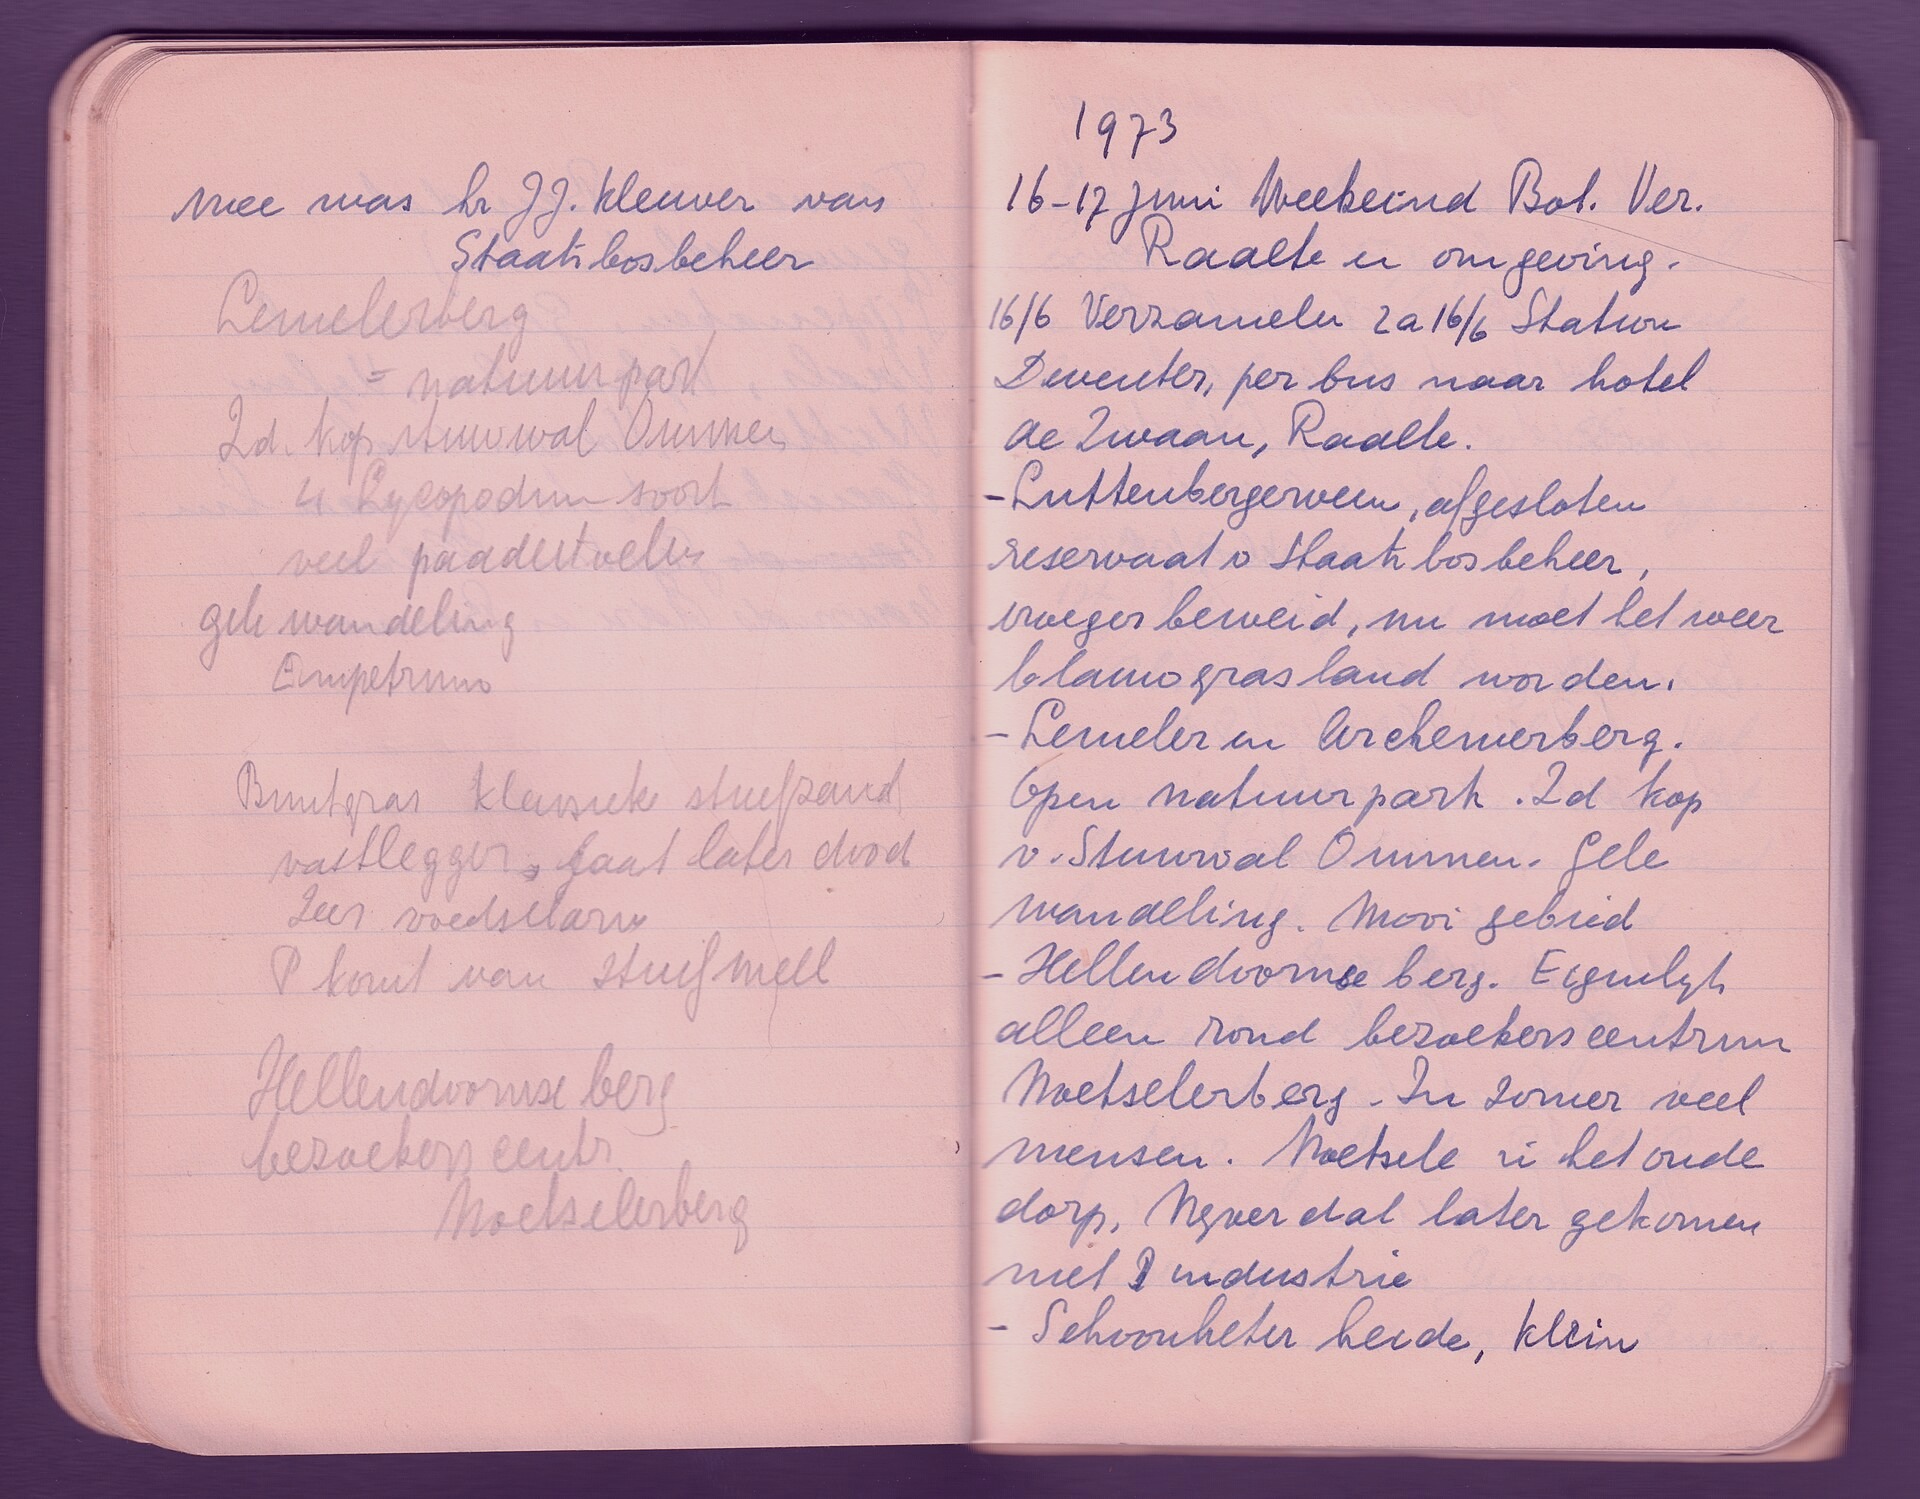 mee was hr J.J. Kleuver van
Staatsbosbeheer
Lemelerberg
= natuurpark
2d. kop stuwwal Ommen
4 Lycopodium soort
veel paddestoelen
gele wandeling
Empetrum
Buntgras klassieke stuifzand
vastlegger, gaat later dood
Zeer voedselarm
P komt van stuifmeel
Hellendoornse berg
bezoekerscentr.
Noetselerberg
1973
16-17 juni Weekeind Bot. Ver.
Raalte en omgeving.
16/6 Verzamelen za 16/6 Station
Deventer, per bus naar hotel
de Zwaan, Raalte.
- Luttenbergerveen, afgesloten
reservaat v Staatsbosbeheer,
vroeger beweid, nu moet het weer
blauwgrasland worden.
- Lemeler en Archemerberg.
Open natuurpark. Zd kop
v. Stuwwal Ommen. Gele
wandeling. Mooi gebied
- Hellendoornse berg. Eigenlijk
alleen rond bezoekerscentrum
Noetselerberg. In zomer veel
mensen. Noetsele is het oude
dorp, Nyverdal later gekomen
met industrie
- Schoonheter heide, klein